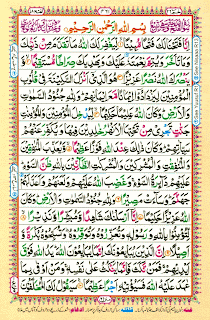 بِسْمِ اللهِ الرَّحْمٰنِ الرَّحِيْمِ
اِنَّا فَتَحْنَا لَكَ فَتْحًا مُّبِيْنًا لِّيَغْفِرَ لَكَ اللهُ مَا تَقَدَّمَ مِنْ ذَنْۢبِكَ
وَمَا تَاَخَّرَ وَيُتِمَّ نِعْمَتَهٗ عَلَيْكَ وَيَهْدِيَكَ صِرَاطًا مُّسْتَقِيْمًا وَّ
يَنْصُرَكَ اللهُ نَصْرًا عَزِيْزًا هُوَ الَّذِيْٓ اَنْزَلَ السَّكِيْنَةَ فِيْ قُلُوْبِ
الْمُؤْمِنِيْنَ لِيَزْدَادُوْٓا اِيْمَانًا مَّعَ اِيْمَانِهِمْ وَلِلّٰهِ جُنُوْدُ السَّمٰوٰتِ
وَالْاَرْضِ وَكَانَ اللهُ عَلِيْمًا حَكِيْمًا لِّيُدْخِلَ الْمُؤْمِنِيْنَ وَالْمُؤْمِنٰتِ
جَنّٰتٍ تَجْرِيْ مِنْ تَحْتِهَا الْاَنْهٰرُ خٰلِدِيْنَ فِيْهَا وَيُكَفِّرَ عَنْهُمْ
سَيِّاٰتِهِمْ وَكَانَ ذٰلِكَ عِنْدَ اللهِ فَوْزًا عَظِيْمًا وَّيُعَذِّبَ
الْمُنٰفِقِيْنَ وَالْمُنٰفِقٰتِ وَالْمُشْرِكِيْنَ وَالْمُشْرِكٰتِ الظَّآنِّيْنَ بِاللهِ ظَنَّ السَّوْءِ
عَلَيْهِمْ دَآئِرَةُ السَّوْءِ وَغَضِبَ اللهُ عَلَيْهِمْ وَلَعَنَهُمْ وَاَعَدَّ لَهُمْ
جَهَنَّمَ وَسَآءَتْ مَصِيْرًا وَلِلّٰهِ جُنُوْدُ السَّمٰوٰتِ وَالْاَرْضِ وَكَانَ اللهُ
عَزِيْزًا حَكِيْمًا اِنَّآ اَرْسَلْنٰكَ شَاهِدًا وَّمُبَشِّرًا وَّنَذِيْرًا
لِّتُؤْمِنُوْا بِاللهِ وَرَسُوْلِهٖ وَتُعَزِّرُوْهُ وَتُوَقِّرُوْهُ وَتُسَبِّحُوْهُ بُكْرَةً وَّ
اَصِيْلًا اِنَّ الَّذِيْنَ يُبَايِعُوْنَكَ اِنَّمَا يُبَايِعُوْنَ اللهَ يَدُ اللهِ فَوْقَ
اَيْدِيْهِمْ فَمَنْ نَّكَثَ فَاِنَّمَا يَنْكُثُ عَلٰى نَفْسِهٖ وَمَنْ اَوْفٰى بِمَا
عٰهَدَ عَلَيْهُ اللهَ فَسَيُؤْتِيْهِ اَجْرًا عَظِيْمًا سَيَقُوْلُ لَكَ الْمُخَلَّفُوْنَ